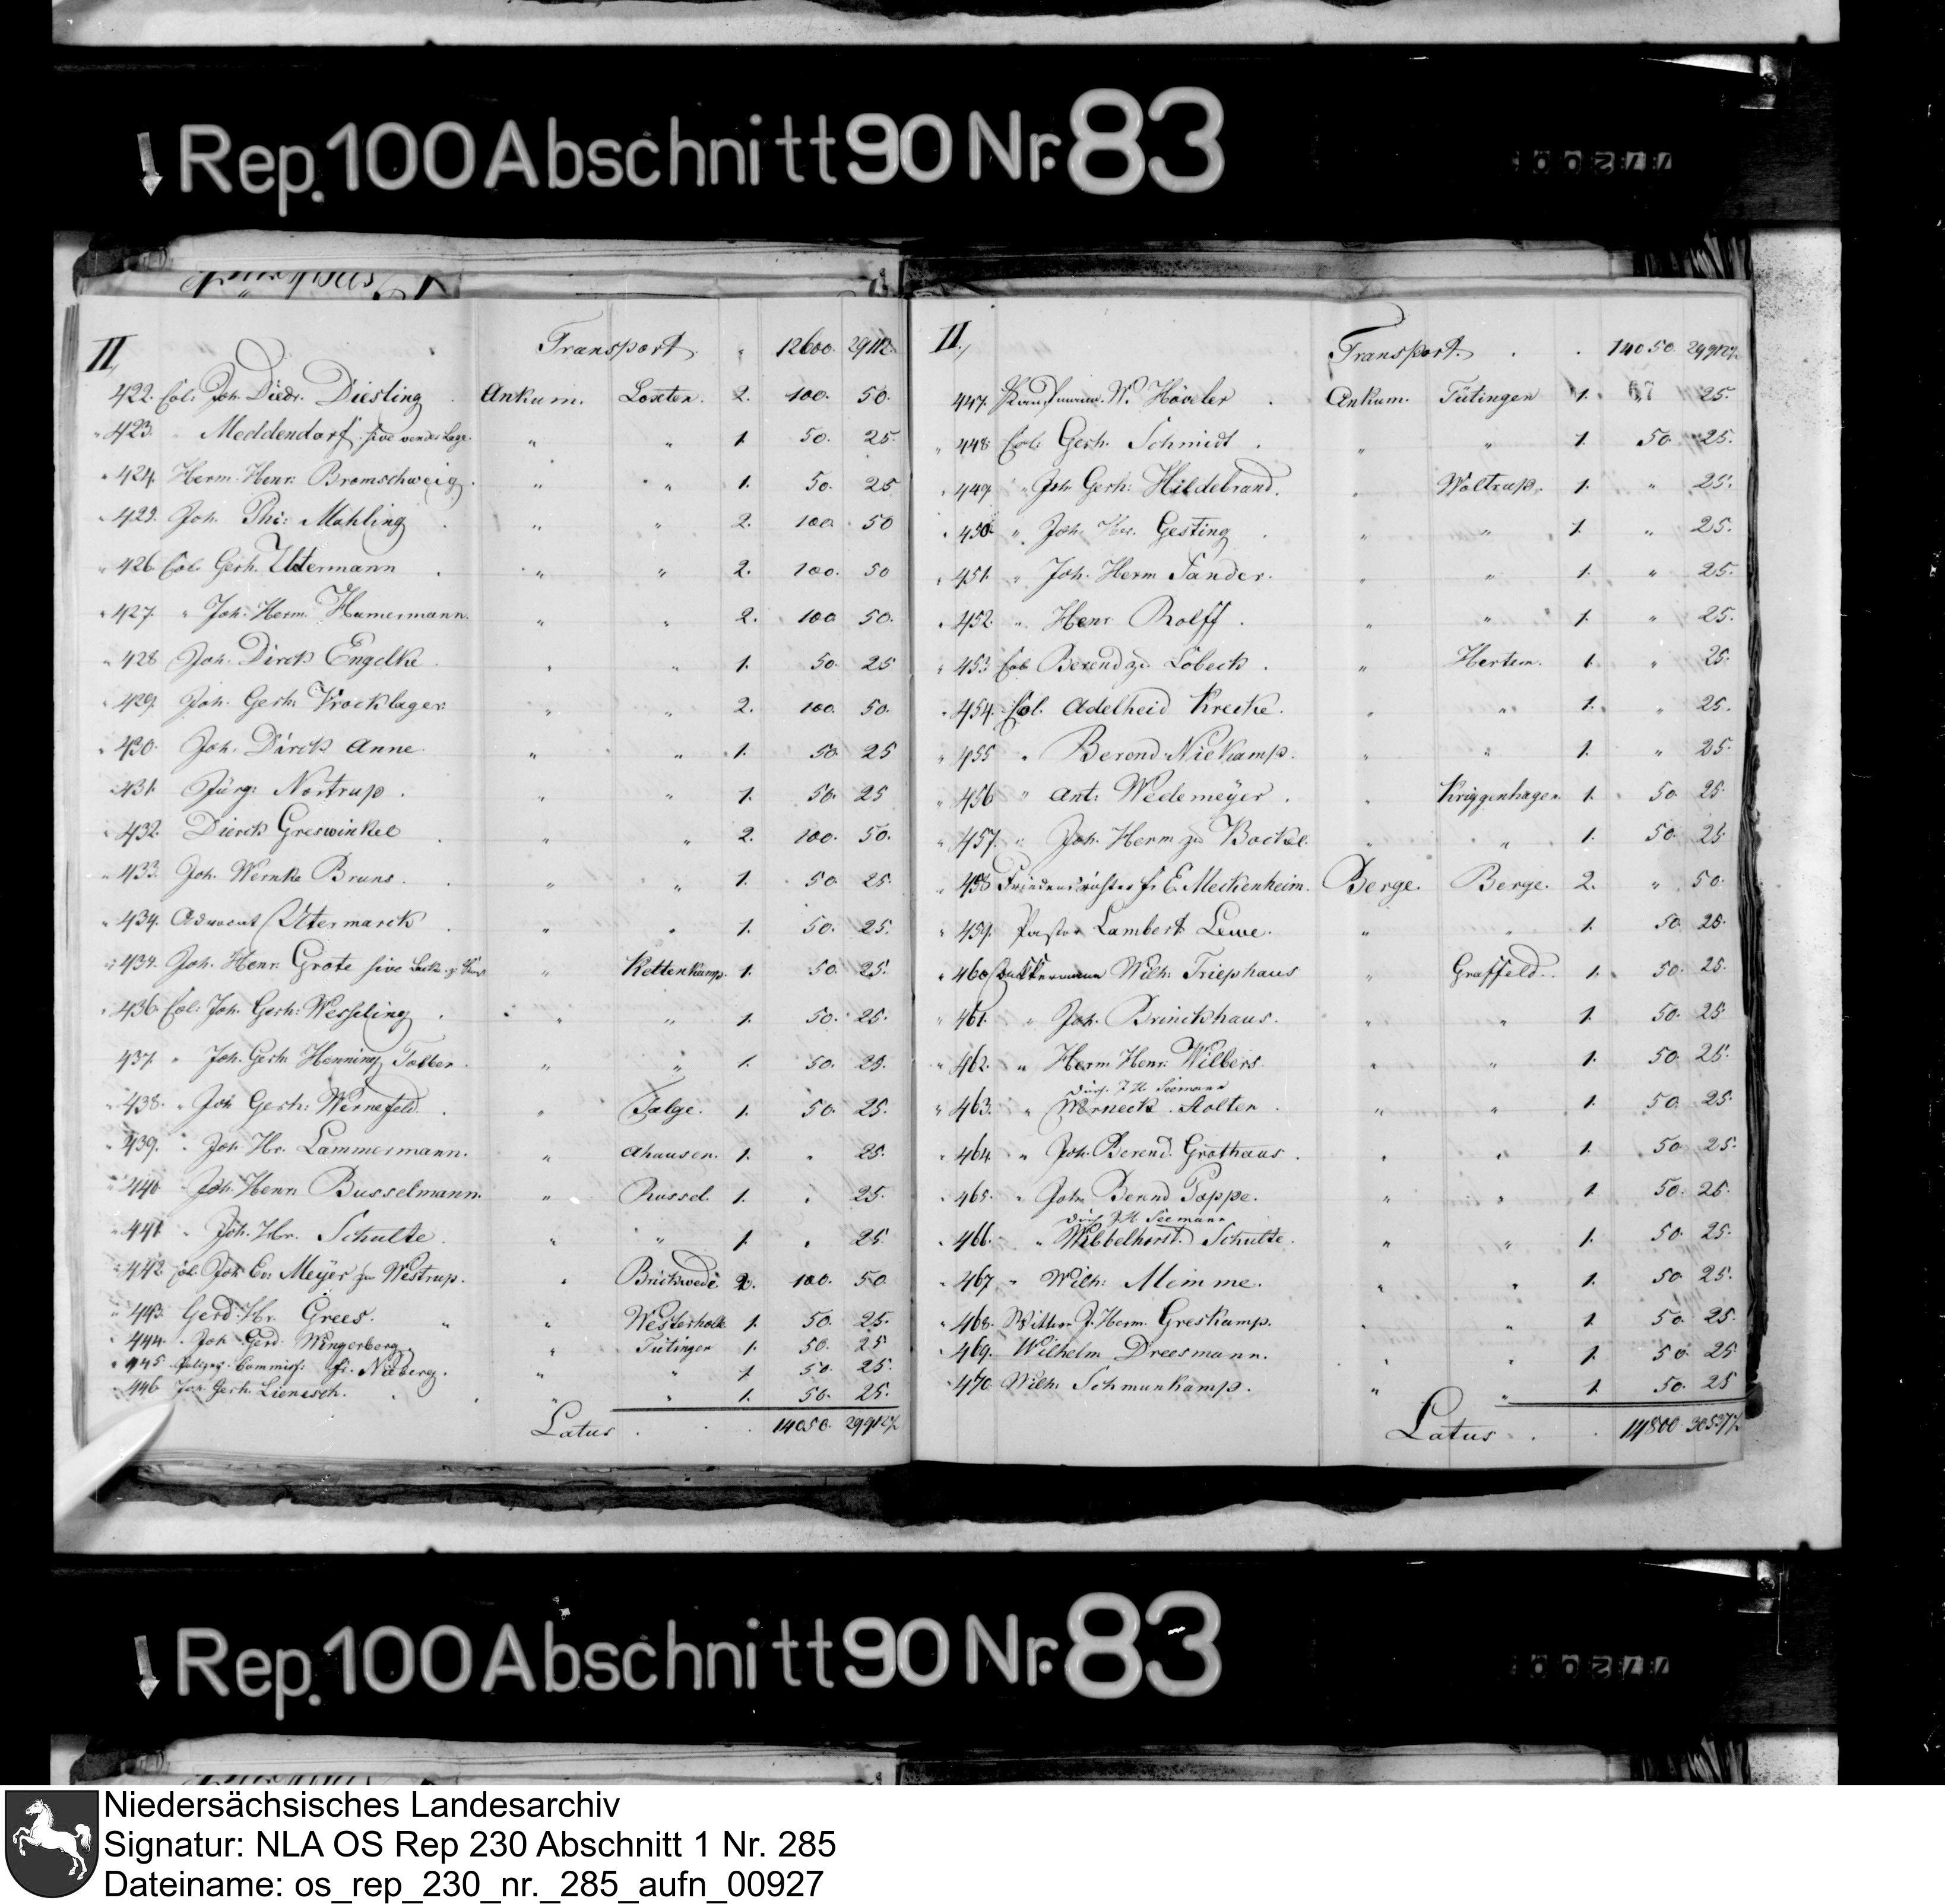 Rep. 100 Abschnitt 90 Nr. 83
II. Transport. " 12600. 29112.
422. Col. Joh. Diedr. Diesling . Ankum. Loxten. 2. 100. 50.
" 423. " Meddendorf sive von der Lage. " " 1. 50. 25.
" 424. Herm. Henr. Bramschweig. " " 1. 50. 25
" 425. Joh. Phi: Mahling . " " 2. 100. 50
" 426. Col. Gerh. Utermann . " " 2. 100. 50
" 427. " Joh. Herm. Hamermann. " " 2. 100 50.
" 428 Joh. Dirck Engelke . " " 1. 50. 25
" 429. Joh. Gerh. Vrocklager. " " 2. 100. 50.
" 430. Joh. Dirck Anne. " " 1. 50 25
" 431. Jürg: Nortrup . " " 1. 50. 25
" 432. Dierck Greswinkel . " " 2. 100. 50.
" 433. Joh. Wernke Bruns . " " 1. 50 25.
" 434. Advocat Utermarck . " " 1. 50. 25.
" 435. Joh. Henr. Grote sive " Kettenkamp. 1. 50. 25.
" 436. Col. Joh. Gerh: Wesseling . " " 1. 50. 25.
437. " Joh. Gerh. Henning . " " 1. 50. 25.
" 438. " Joh Gerh: Wernefeld. . " Talge. 1. 50. 25.
" 439. " Joh. Hr. Lammermann. " Ahausen. 1. " 25.
" 440. Joh. Henr. Busselmann. " Russel. 1. " 25.
" 441. " Joh. Hr. Schulte . " " 1. " 25
" 442. Col. Joh. Ev: Meyer zu Westrup. " Brickwede 2. 100. 50
" 443. Gerd. Hr. Grees. " " Westerholte 1. 50. 25.
" 444. " Joh. Gerd. Wingerberg " Tütingen 1. 50. 25
" 445. Commiss: Fr. Nieberg. " " 1 50. 25.
" 446 Joh. Gerh. Lienesch. . " " 1. 50. 25.
Latus . . . 14050. 29912½
II. Transport. . . 14050. 29912½
447. Kaufmann W. Höveler . Ankum. Tütingen 1. " 25.
67
" 448. Col. Gerh. Schmidt . " " 1. 50 25.
" 449. " Joh. Gerh: Hildebrand. " Woltrup. 1. " 25.
" 450. " Joh. Hr. Gesting . " " 1. " 25.
" 451. " Joh. Herm Sander. " " 1. " 25.
" 452. " Henr Rolff . " " 1. " 25.
" 453. Col Berend zu Lobeck . " Hertem. 1. " 25.
" 454. Col. Adelheid Krecke. " " 1. " 25.
" 455 " Berend Niekamp. " " 1. " 25.
" 456 " Ant: Wedemeyer . " Kriggenhagen 1. 50. 25.
" 457. " Joh. Herm zu Bockel. " " 1. 50. 25
" 458 Friedensrichter Fr. E. Meckenheim. Berge. Berge. 2. " 50.
" 459. Pastor Lambert Lewe. " " 1. 50 25.
" 460 Wilh. Triephaus " Graffeld. 1. 50. 25.
" 461. " Joh. Brinckhaus. " " 1. 50. 25
" 462. " Herm Henr. Wilbers. " " 1. 50. 25.
durch J. H. Seemann
" 463. " Werneck Stolten . " " 1. 50. 25.
" 464 " Joh. Berend Grothaus . " " 1. 50 25.
" 465. " Joh. Bernd Poppe. " " 1. 50. 25.
durch J. H. Seemann
" 466. " Wibbelhorst Schulte. " " 1. 50 25.
" 467 " Wilh: Mimme. " " 1. 50 25.
" 468. Wittwe J. Herm. Greskamp. " " 1. 50. 25
" 469. Wilhelm Dreesmann. " " 1. 50. 25
" 470. Wilh. Schmunkamp. " " 1. 50. 25
Latus . . 14800 30537½
Rep. 100 Abschnitt 90 Nr. 83
Niedersächsisches Landesarchiv
Signatur: NLA OS Rep 230 Abschnitt 1 Nr. 285
Dateiname: os_rep_230_nr._285_aufn_00927